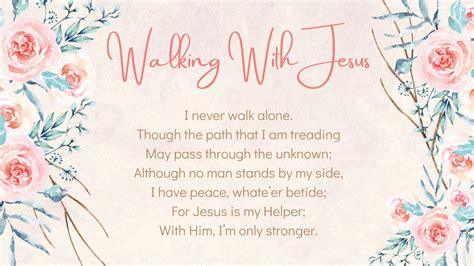 Walking With Jesus
I never walk alone.
Though the path that I am treading
May pass through the unknown;
Although no man stands by my side,
I have peace, whate'er betide;
For Jesus is my Helper;
With Him, I'm only stronger.